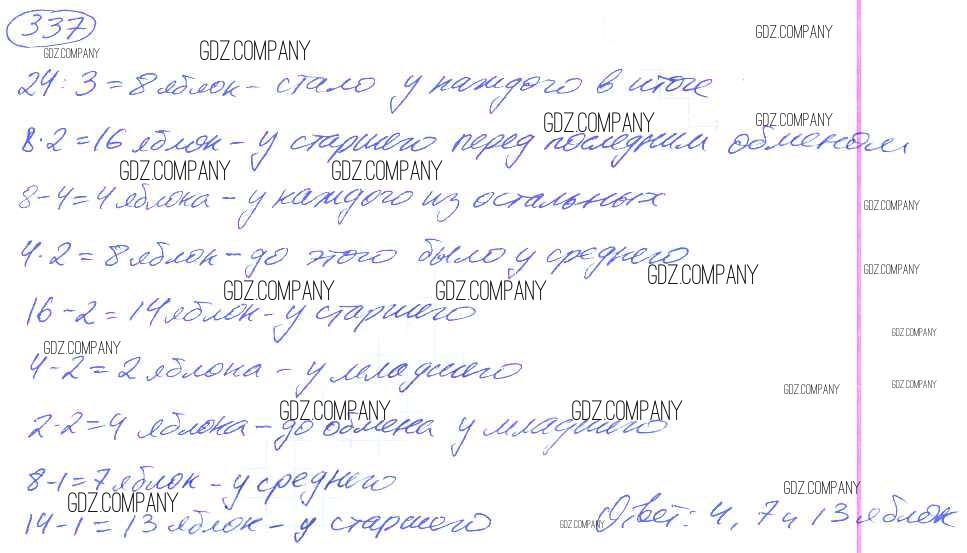 337
GDZ.COMPANY
GDZ.COMPANY
GDZ.COMPANY
24 : 3 = 8 яблок - стало у каждого в итоге
GDZ.COMPANY
GDZ.COMPANY
8·2 = 16 яблок - у старшего перед последним обменом
GDZ.COMPANY
GDZ.COMPANY
8-4=4 яблока - у каждого из остальных
GDZ.COMPANY
4·2 = 8 яблок - до этого было у среднего
GDZ.COMPANY
GDZ.COMPANY
GDZ.COMPANY
GDZ.COMPANY
16-2=14 яблок - у старшего
GDZ.COMPANY
GDZ.COMPANY
4-2=2 яблока - у младшего
GDZ.COMPANY
GDZ.COMPANY
GDZ.COMPANY
GDZ.COMPANY
2·2=4 яблока - до обмена у младшего
8-1=7 яблок - у среднего
GDZ.COMPANY
GDZ.COMPANY
14-1=13 яблок - у старшего
GDZ.COMPANY
Ответ: 4, 7 и 13 яблок